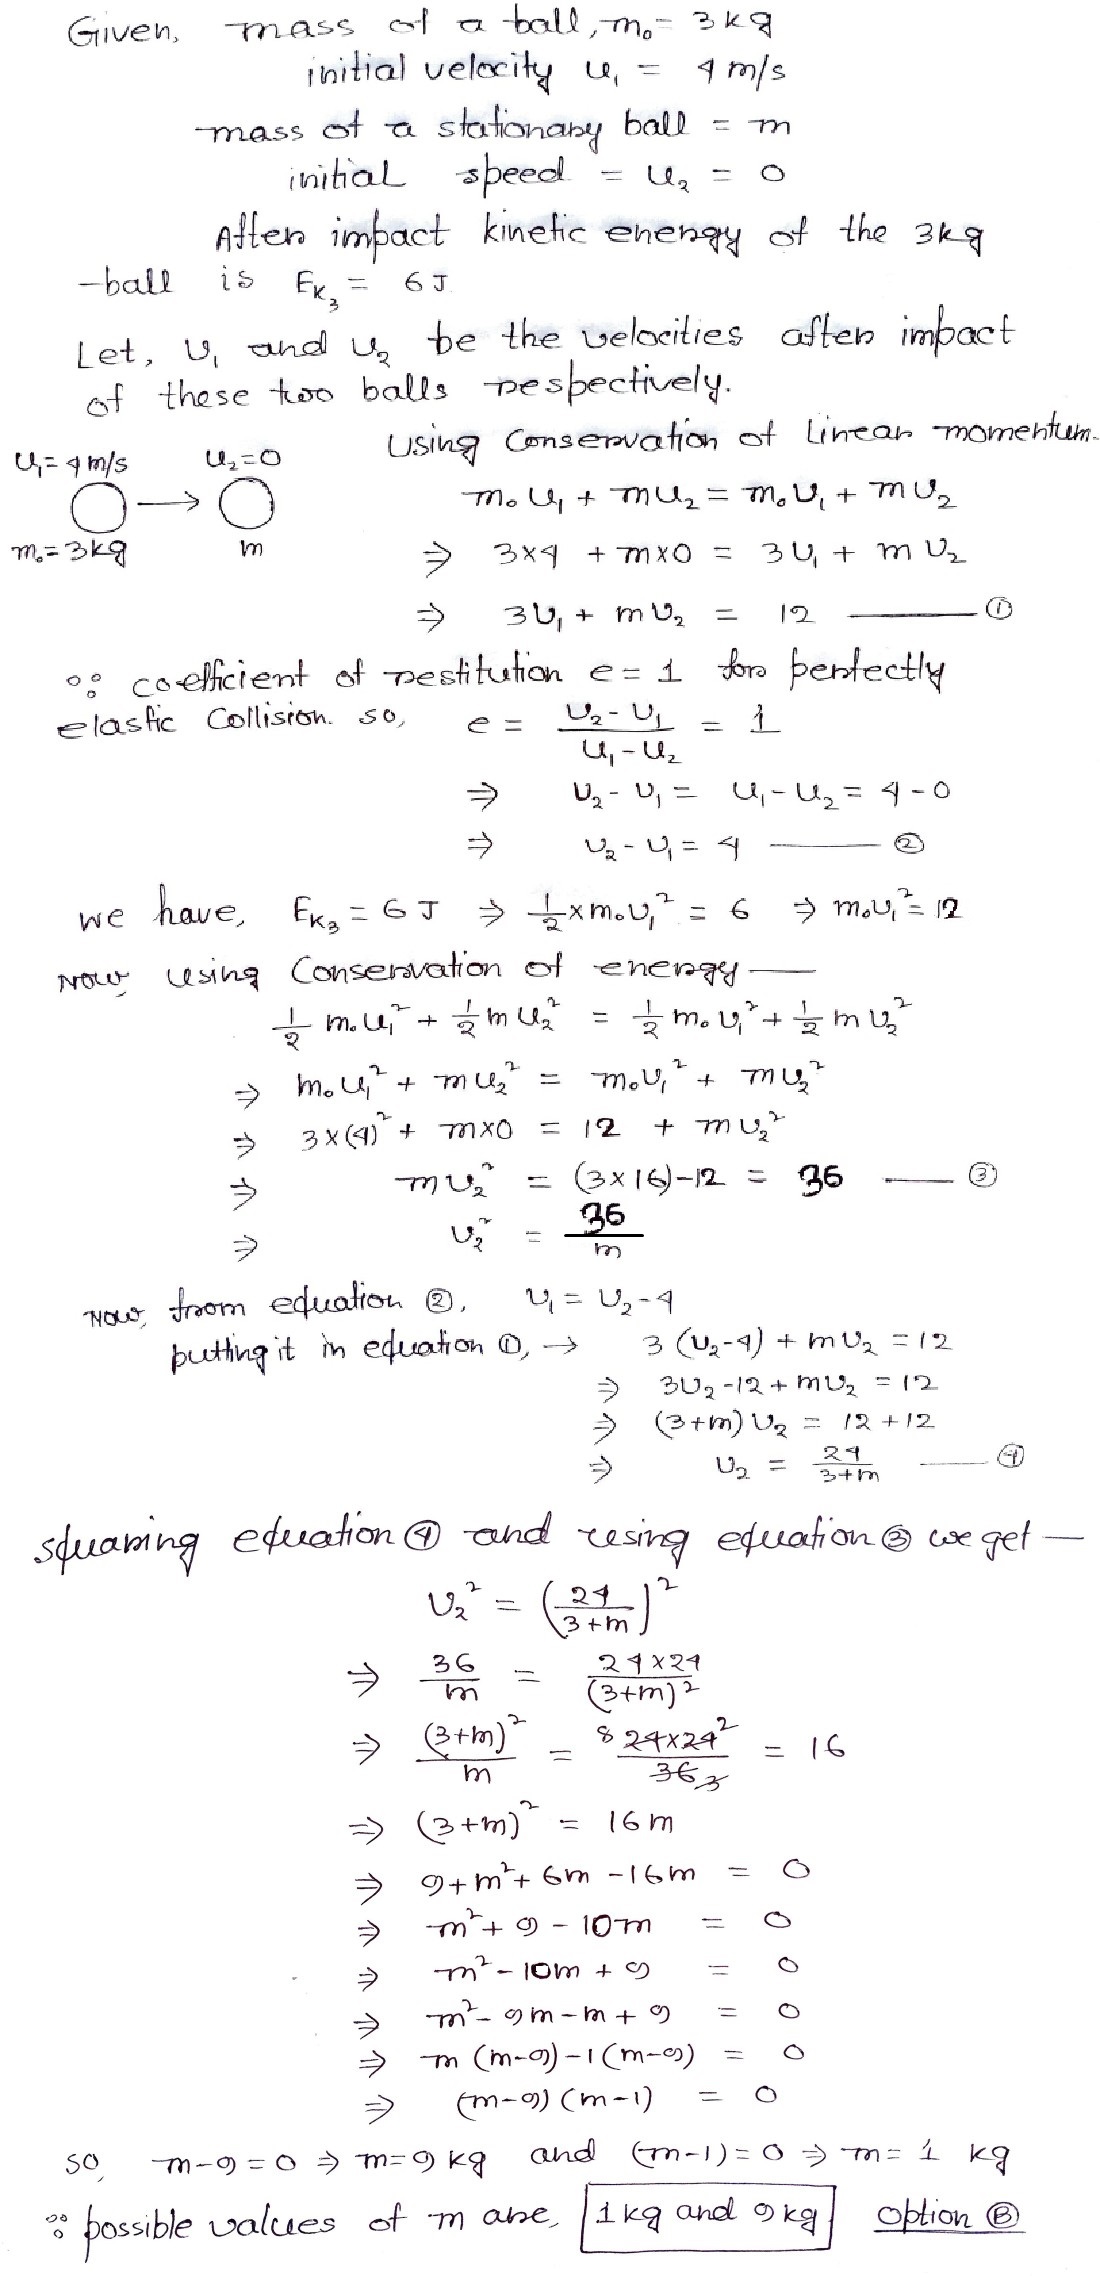 Given, mass of a ball, m₀ = 3 kg
initial velocity u₁ = 4 m/s
mass of a stationary ball = m
initial speed = u₂ = 0
After impact kinetic energy of the 3kg
ball is E_K₃ = 6 J
Let, v₁ and v₂ be the velocities after impact
of these two balls respectively.
Using Conservation of Linear momentum.
u₁ = 4 m/s u₂ = 0
m₀ = 3 kg m
m₀u₁ + mu₂ = m₀v₁ + mv₂
⇒ 3×4 + m×0 = 3v₁ + mv₂
⇒ 3v₁ + mv₂ = 12 —— ①
∵ coefficient of restitution e = 1 for perfectly
elastic Collision. so, e = (v₂ - v₁)/(u₁ - u₂) = 1
⇒ v₂ - v₁ = u₁ - u₂ = 4 - 0
⇒ v₂ - v₁ = 4 —— ②
we have, E_K₃ = 6 J ⇒ ½ × m₀v₁² = 6 ⇒ m₀v₁² = 12
Now, using Conservation of energy —
½ m₀u₁² + ½ mu₂² = ½ m₀v₁² + ½ mv₂²
⇒ m₀u₁² + mu₂² = m₀v₁² + mv₂²
⇒ 3×(4)² + m×0 = 12 + mv₂²
⇒ mv₂² = (3×16) - 12 = 36 —— ③
⇒ v₂² = 36/m
Now, from equation ②, v₁ = v₂ - 4
putting it in equation ①, → 3(v₂ - 4) + mv₂ = 12
⇒ 3v₂ - 12 + mv₂ = 12
⇒ (3+m)v₂ = 12 + 12
⇒ v₂ = 24/(3+m) —— ④
squaring equation ④ and using equation ③ we get —
v₂² = (24/(3+m))²
⇒ 36/m = 24×24/(3+m)²
⇒ (3+m)²/m = 8 24×24 2/36 3 = 16
⇒ (3+m)² = 16m
⇒ 9 + m² + 6m - 16m = 0
⇒ m² + 9 - 10m = 0
⇒ m² - 10m + 9 = 0
⇒ m² - 9m - m + 9 = 0
⇒ m(m-9) - 1(m-9) = 0
⇒ (m-9)(m-1) = 0
so, m-9 = 0 ⇒ m = 9 kg and (m-1) = 0 ⇒ m = 1 kg
∴ possible values of m are, 1 kg and 9 kg Option Ⓑ